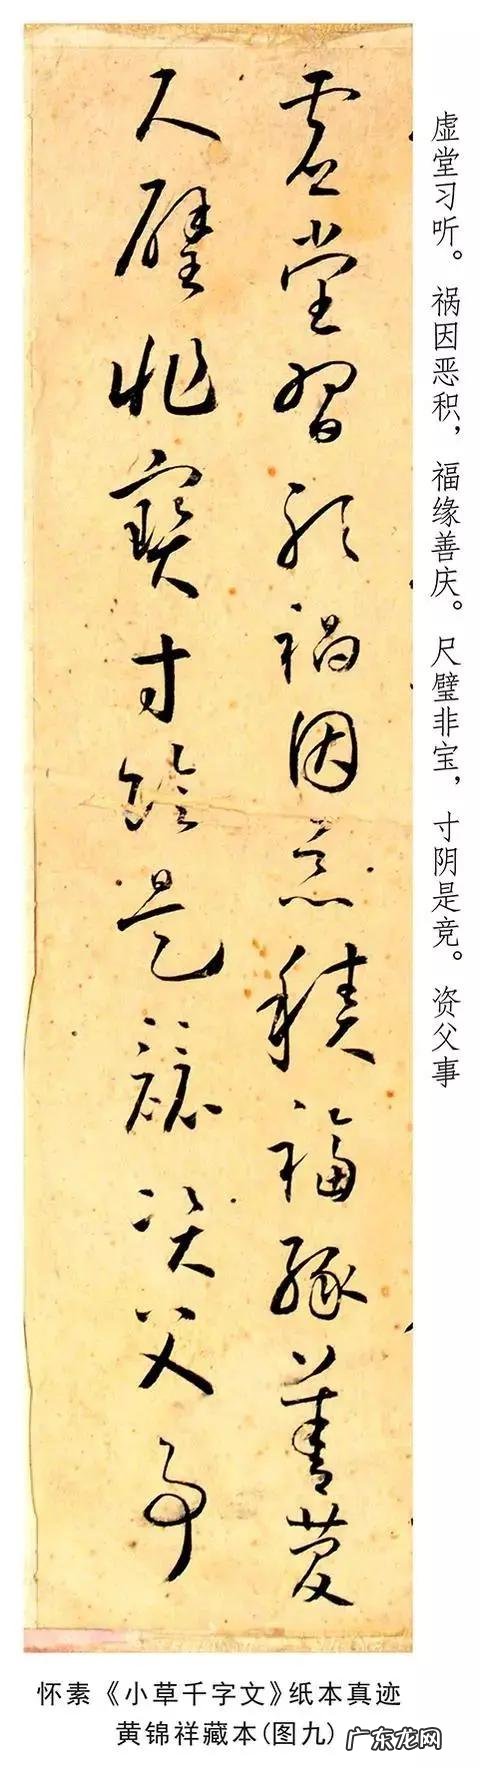 虚堂习听。祸因恶积，福缘善庆。尺璧非宝，寸阴是竞。资父事
虚堂習聽禍因惡積福緣善慶
尺璧非寶寸陰是競資父事
怀素《小草千字文》纸本真迹
黄锦祥藏本(图九)
广东龙网